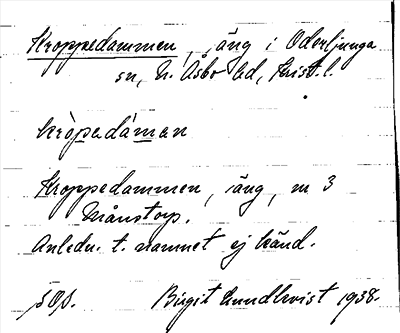 Kroppedammen, äng i Oderljunga
sn, N. Åsbo hd, Krist. l.
kròpedáman
Kroppedammen, äng, nr 3
Månstorp.
Anledn. t. namnet ej känd.
Birgit Lundkvist 1938.